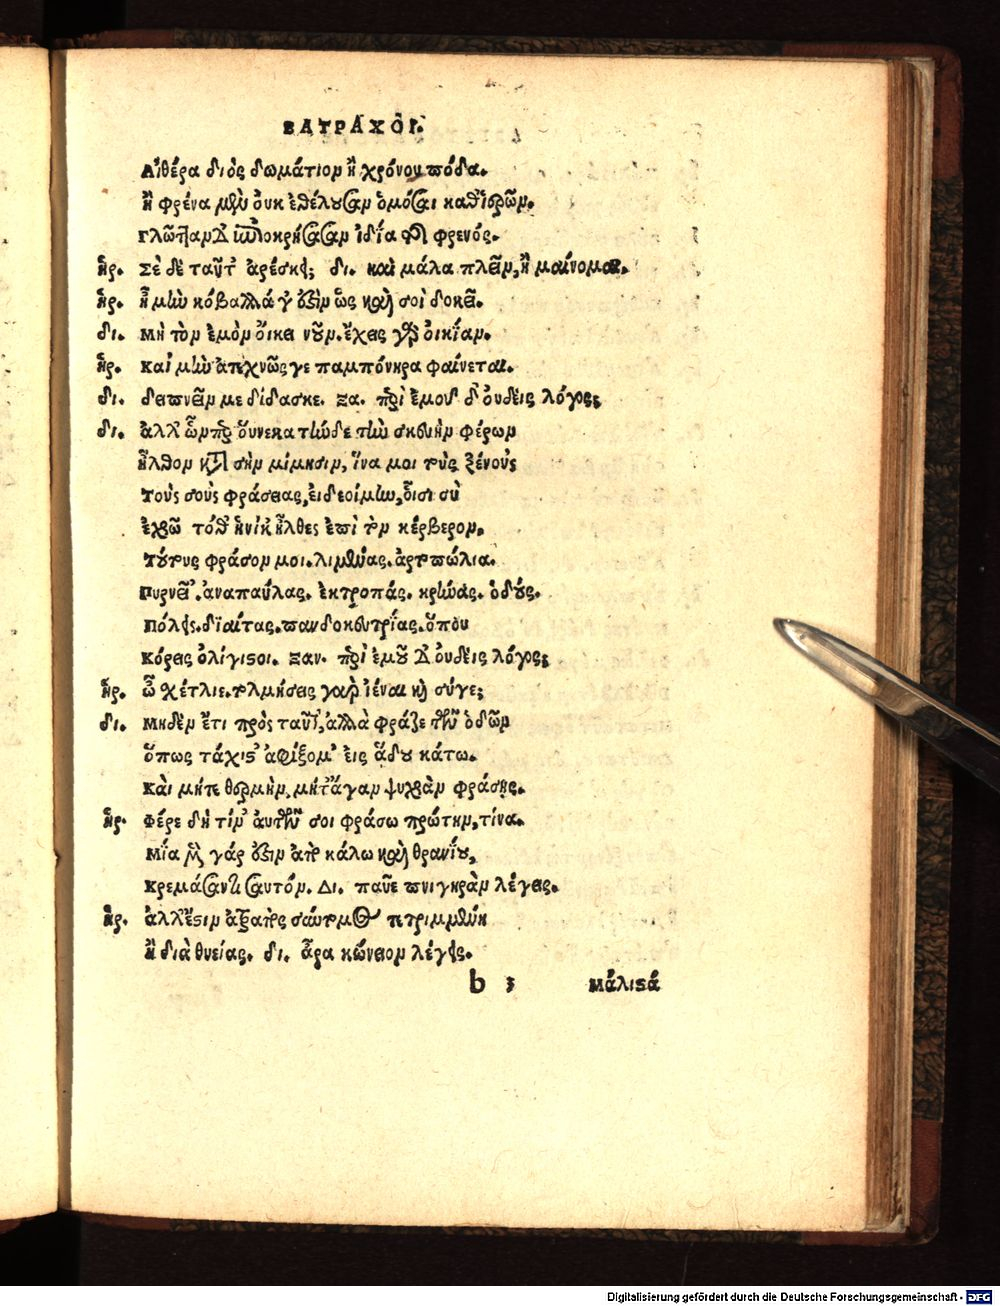 ΒΑΤΡΑΧΟΙ.
Αἰθέρα διὸς δωμάτιον ἢ χρόνου πόδα.
ἢ φρένα μὲν οὐκ ἐθέλουσαν ὀμόσαι καθ' ἱερῶν.
Γλῶτταν δ' ἐπιορκήσασαν ἰδία τῆς φρενός.
ἡρ. Σὲ δὲ ταῦτ' ἀρέσκει; δι. καὶ μάλα πλεῖν, ἢ μαίνομαι.
ἡρ. ἦ μὴν κόβαλλά γ' ἐστὶν ὡς καὶ σοὶ δοκεῖ.
δι. Μὴ τὸν ἐμὸν οἴκει νοῦν. ἔχεις γὰρ οἰκίαν.
ἡρ. Καὶ μὴν ἀτεχνῶς γε παμπόνηρα φαίνεται.
δι. δειπνεῖν με δίδασκε. ξα. περὶ ἐμοῦ δ' οὐδεὶς λόγος;
δι. ἀλλ' ὧνπερ οὕνεκα τήνδε τὴν σκευὴν φέρων
ἦλθον κατὰ σὴν μίμησιν, ἵνα μοι τοὺς ξένους
Τοὺς σοὺς φράσειας, εἰ δεοίμην, οἷσι σὺ
ἐχρῶ τόθ' ἡνίκ' ἦλθες ἐπὶ τὸν κέρβερον.
Τούτους φράσον μοι. λιμένας. ἀρτοπώλια.
Πορνεῖ'. ἀναπαύλας. ἐκτροπάς. κρήνας. ὁδούς.
Πόλεις. διαίτας. πανδοκευτρίας. ὅπου
Κόρεις ὀλίγιστοι. ξαν. περὶ ἐμοῦ δ' οὐδεὶς λόγος;
ἡρ. ὦ σχέτλιε. τολμήσεις γὰρ ἰέναι καὶ σύγε;
δι. Μηδὲν ἔτι πρὸς ταῦτ', ἀλλὰ φράζε τῶν ὁδῶν
ὅπως τάχιστ' ἀφίξομ' εἰς ᾅδου κάτω.
Καὶ μήτε θερμὴν, μήτ' ἄγαν ψυχρὰν φράσῃς.
ἡρ. Φέρε δὴ τίν' αὐτῶν σοι φράσω πρώτην, τίνα.
Μία μὲν γάρ ἐστιν ἀπὸ κάλω καὶ θρανίου,
Κρεμάσαντι σαυτόν. Δι. παῦε πνιγηρὰν λέγεις.
ἡρ. ἀλλ' ἔστιν ἀτραπὸς σύντομος τετριμμένη
ἢ διὰ θυείας. δι. ἆρα κώνειον λέγεις.
b 3 Μάλιστά
Digitalisierung gefördert durch die Deutsche Forschungsgemeinschaft - DFG